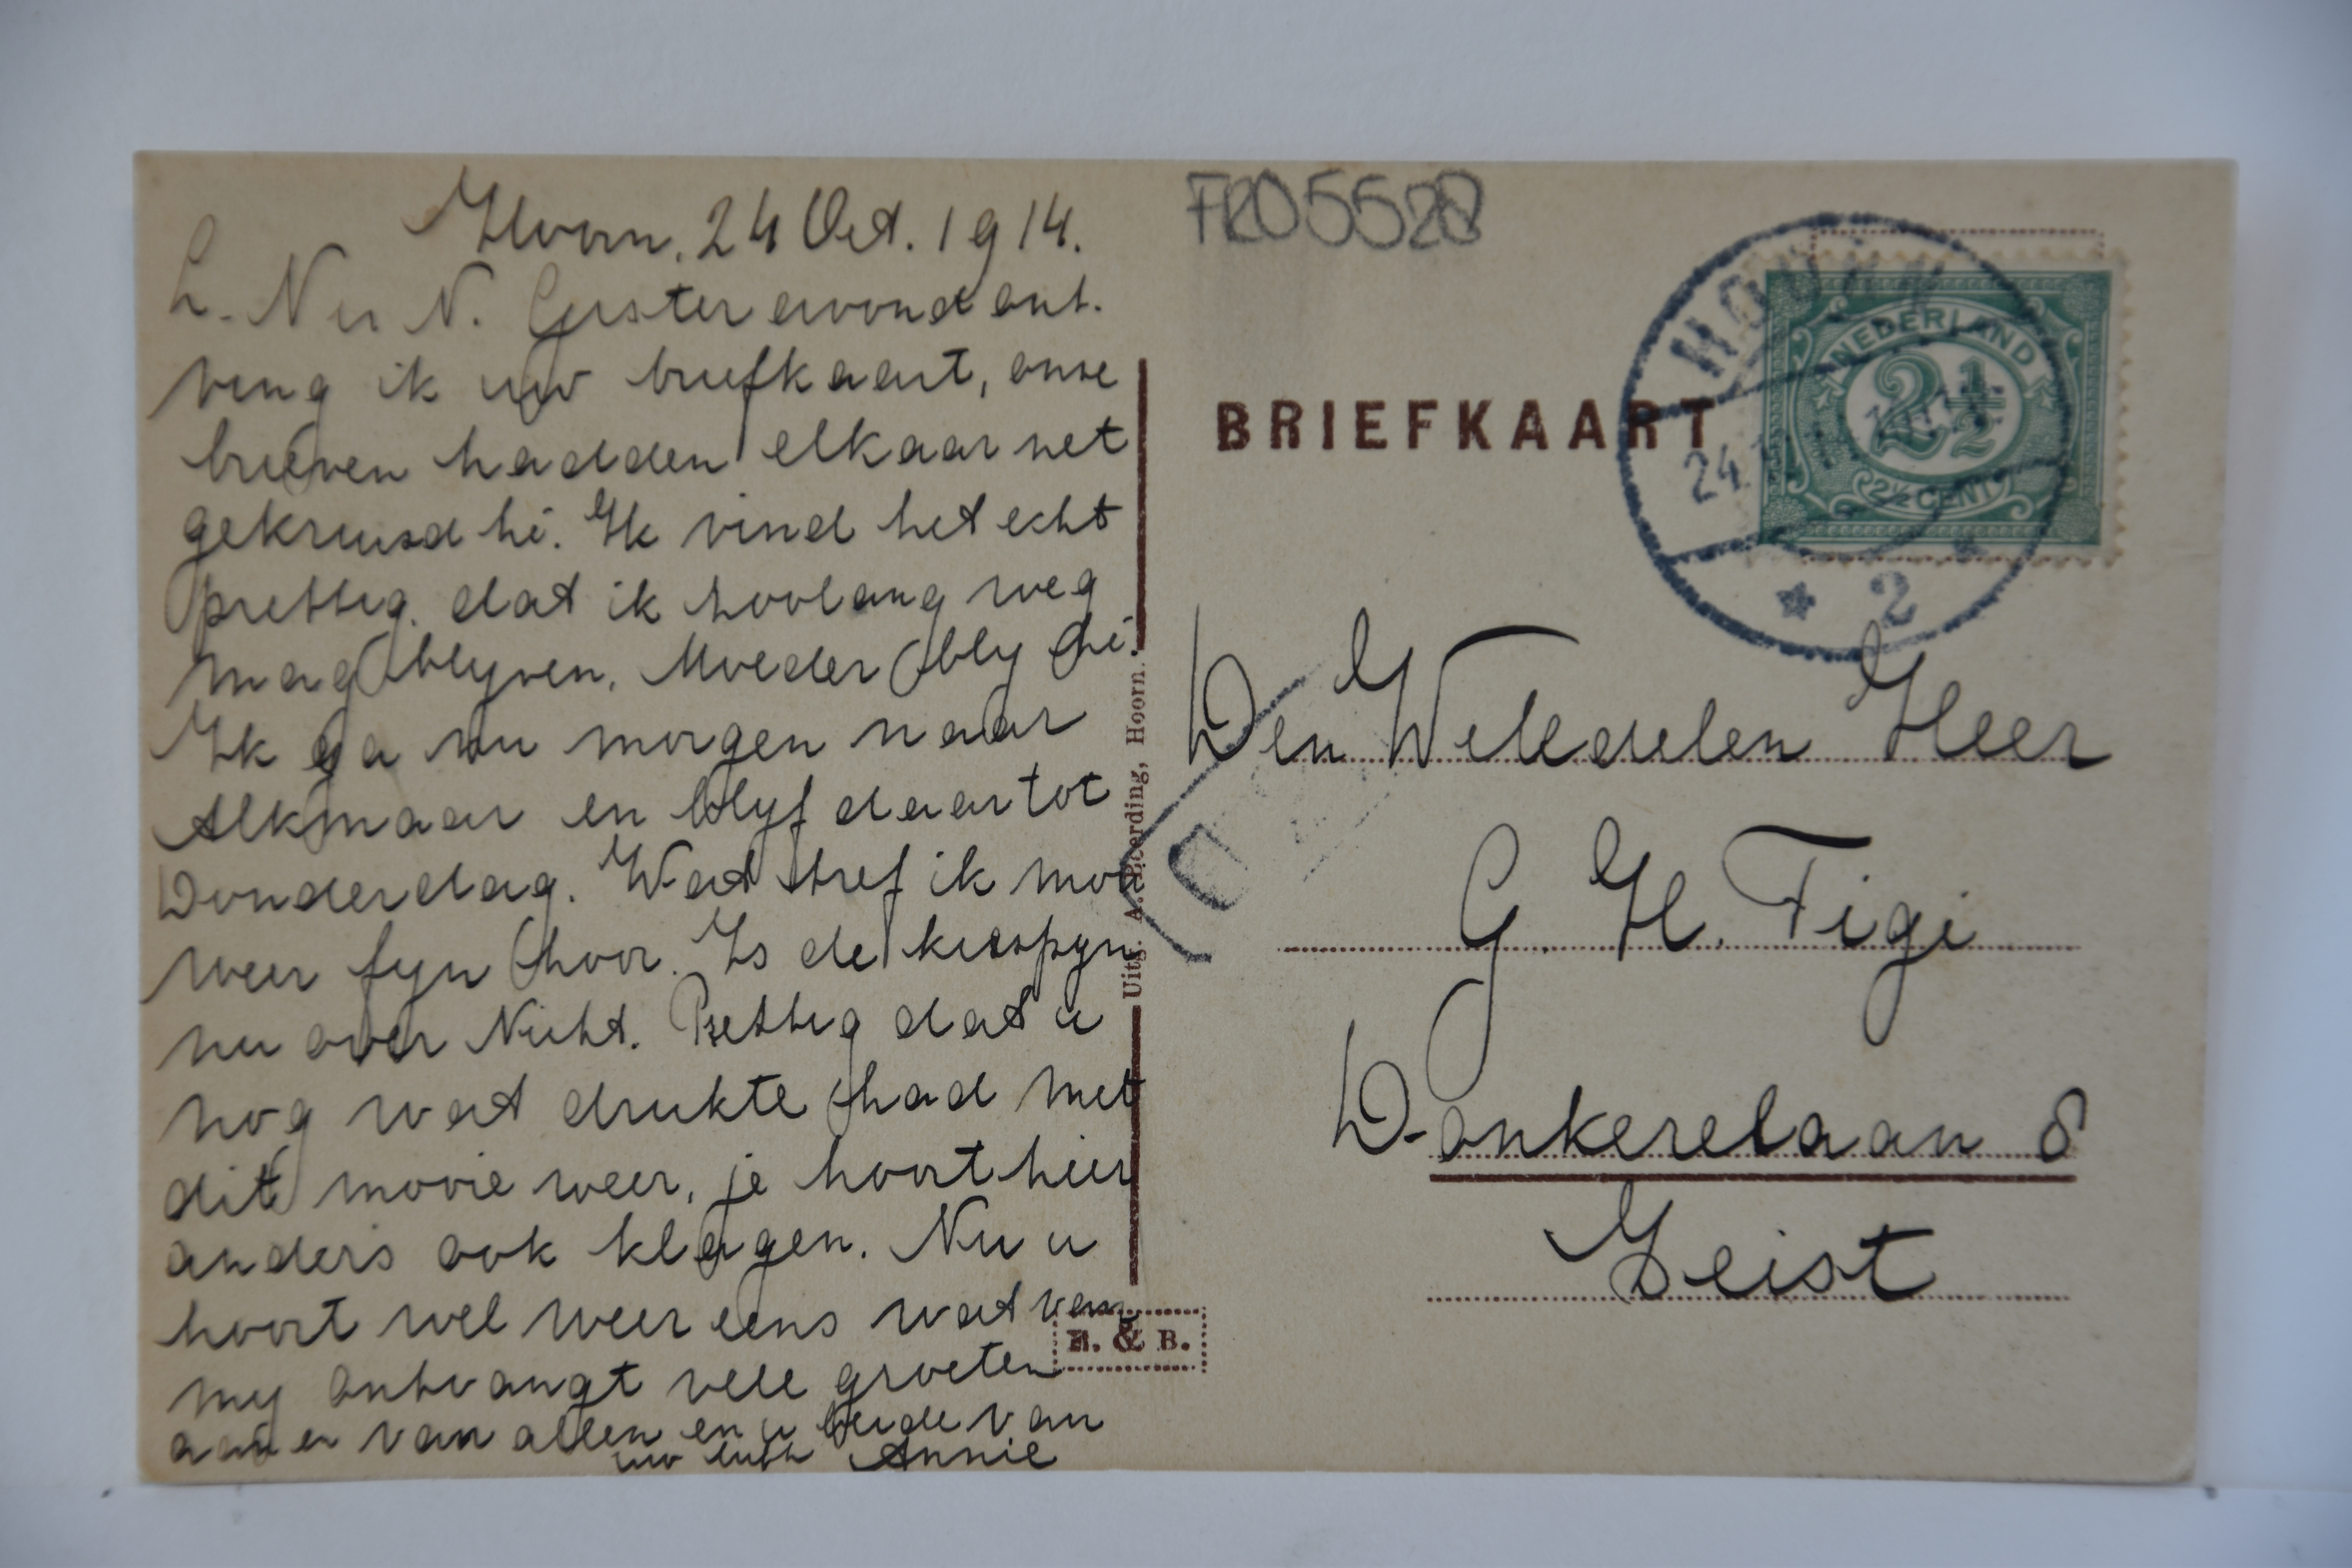 Hoorn. 24 Oct. 1914.
L. N en N. Gisteravond ont-
ving ik uw briefkaart, onze
brieven hadden elkaar net
gekruisd hè. Ik vind het echt
prettig, dat ik zoolang weg
mag blyven. Moeder bly hè.
Ik ga nu morgen naar
Alkmaar en blyf daar tot
Donderdag. Wat tref ik mooi
weer fyn hoor. Is de kiespyn
nu over Nicht. Prettig dat u
nog wat drukte had met
dit mooie weer, je hoort hier
anders ook klagen. Nu u
hoort wel weer eens wat van
my ontvangt vele groeten
van allen en u beide van
uw Annie
FR05528
BRIEFKAART
HOORN
24
2
NEDERLAND
2½
2½ CENT
Den Weledelen Heer
G. H. Figi
Donkerelaan 8
Zeist
Uitg. A. Pieerding, Hoorn.
& B.